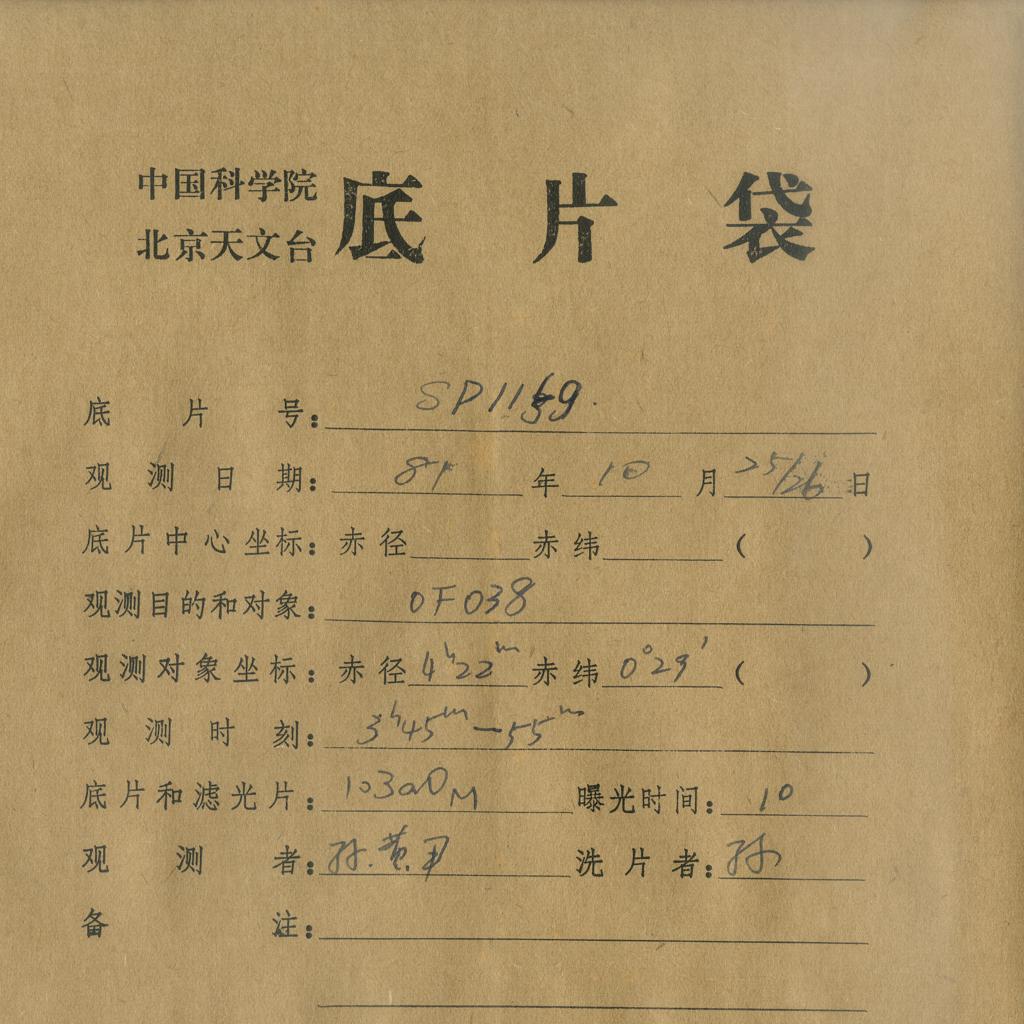 中国科学院
北京天文台
底片袋
底片号：SP1159.
观测日期：81年10月25/26日
底片中心坐标：赤径 赤纬 （ ）
观测目的和对象：OF038
观测对象坐标：赤径4h22m 赤纬0°29′（ ）
观测时刻：3h45m—55m
底片和滤光片：103aDM 曝光时间：10
观测者：孙.黄. 洗片者：孙
备注：